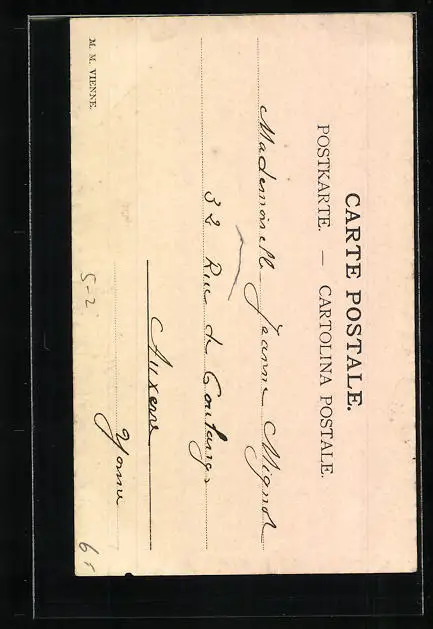 CARTE POSTALE.
POSTKARTE. — CARTOLINA POSTALE.
Mademoiselle Jeanne Mignot
32 Rue de Coulanges
Auxerre
Yonne
M. M. VIENNE.
5-2